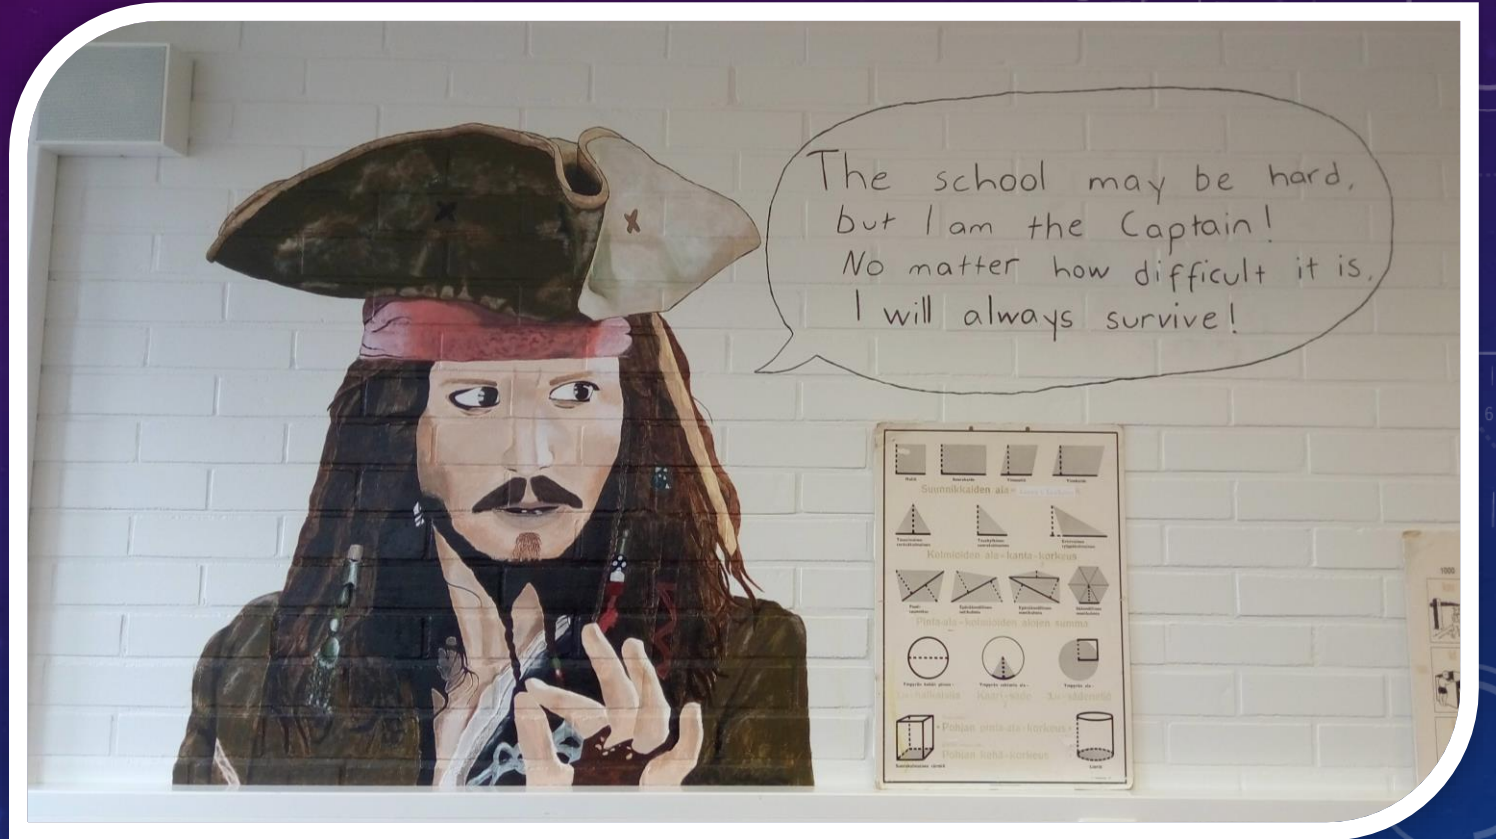 The school may be hard,
but I am the Captain!
No matter how difficult it is,
I will always survive!
Suunnikkaiden ala=
Kolmioiden ala=kanta·korkeus
Pinta-ala=kolmioiden alojen summa
Pohjan pinta-ala·korkeus
Pohjan kehä·korkeus
1000
6